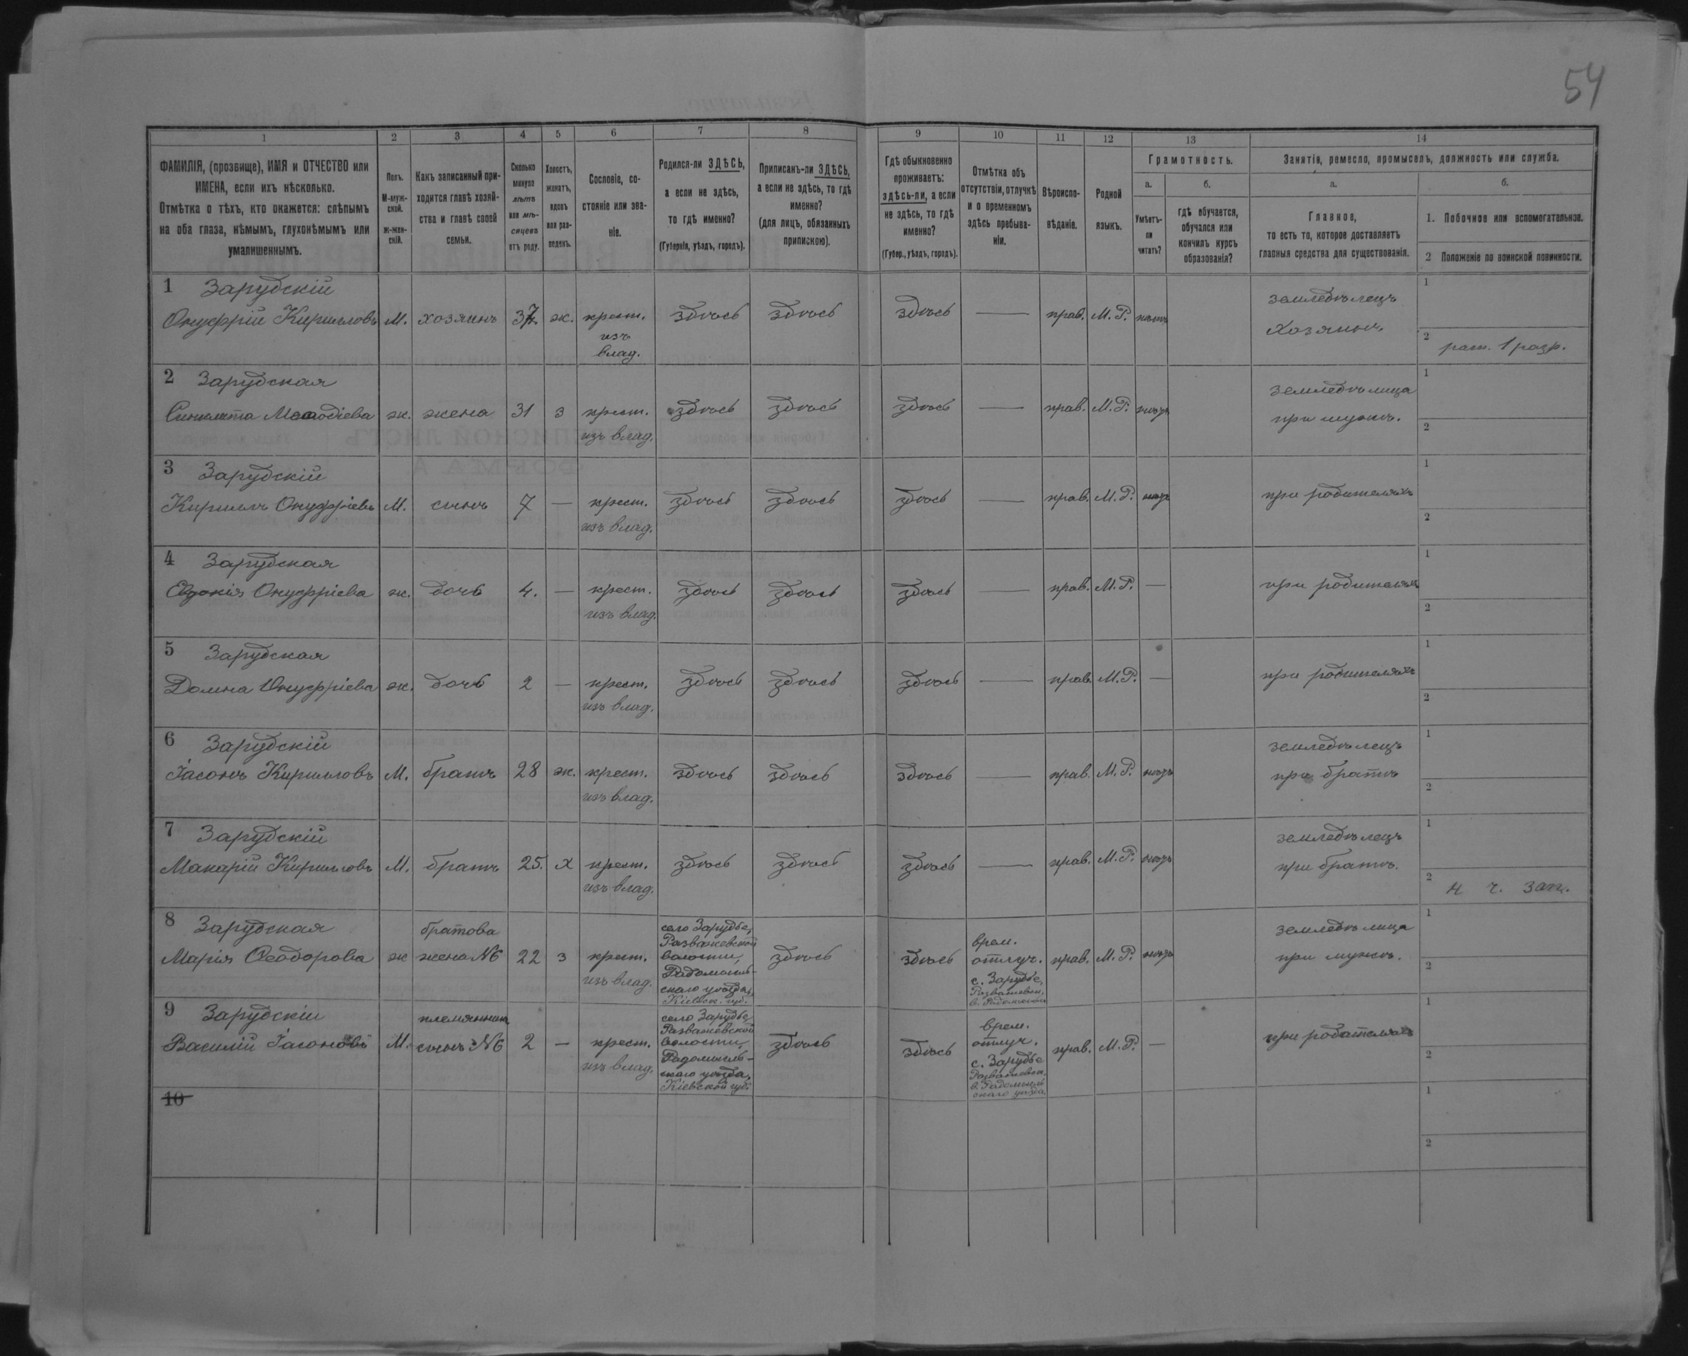 54
1 2 3 4 5 6 7 8 9 10 11 12 13 14
ФАМИЛІЯ, (прозвище), ИМЯ и ОТЧЕСТВО или
ИМЕНА, если ихъ нѣсколько.
Отмѣтка о тѣхъ, кто окажется: слѣпымъ
на оба глаза, нѣмымъ, глухонѣмымъ или
умалишеннымъ.
Полъ.
М-муж-
ской.
ж-жен-
скій.
Какъ записанный при-
ходится главѣ хозяй-
ства и главѣ своей
семьи.
Сколько
минуло
лѣтъ
или мѣ-
сяцевъ
отъ роду.
Холостъ,
женатъ,
вдовъ
или раз-
веденъ.
Сословіе, со-
стояніе или зва-
ніе.
Родился-ли ЗДѢСЬ,
а если не здѣсь,
то гдѣ именно?
(Губернія, уѣздъ, городъ).
Приписанъ-ли ЗДѢСЬ,
а если не здѣсь, то гдѣ
именно?
(для лицъ, обязанныхъ
припискою).
Гдѣ обыкновенно
проживаетъ:
здѣсь-ли, а если
не здѣсь, то гдѣ
именно?
(Губер., уѣздъ, городъ).
Отмѣтка объ
отсутствіи, отлучкѣ
и о временномъ
здѣсь пребыва-
ніи.
Вѣроиспо-
вѣданіе.
Родной
языкъ.
Грамотность.
а.
Умѣетъ-
ли
читать?
б.
гдѣ обучается,
обучался или
кончилъ курсъ
образованія?
Занятіе, ремесло, промыселъ, должность или служба.
а.
Главное,
то есть то, которое доставляетъ
главныя средства для существованія.
б.
1. Побочное или вспомогательное.
2 Положеніе по воинской повинности.
1 Зарубскій
Онуфрій Кирилловъ М. хозяинъ 37. ж. крест. здѣсь здѣсь здѣсь — прав. М.Р. нѣтъ
изъ
влад.
земледѣлецъ
хозяинъ
1
2 рат. 1 разр.
2 Зарубская
Методіева ж. жена 31 з крест. здѣсь здѣсь здѣсь — прав. М.Р. нѣтъ
изъ влад.
земледѣлица
при мужѣ.
1
2
3 Зарубскій
Кириллъ Онуфріевъ М. сынъ 7 — крест. здѣсь здѣсь здѣсь — прав. М.Р. нѣтъ при родителяхъ
изъ влад.
1
2
4 Зарубская
Евдокія Онуфріева ж. дочь 4. — крест. здѣсь здѣсь здѣсь — прав. М.Р. — при родителяхъ
изъ влад.
1
2
5 Зарубская
Домна Онуфріева ж. дочь 2 — крест. здѣсь здѣсь здѣсь — прав. М.Р. — при родителяхъ
изъ влад.
1
2
6 Зарубскій
Іасонъ Кирилловъ М. братъ 28 ж. крест. здѣсь здѣсь здѣсь — прав. М.Р. нѣтъ
изъ влад.
земледѣлецъ
при братѣ
1
2
7 Зарубскій
Макарій Кирилловъ М. братъ 25. х крест. здѣсь здѣсь здѣсь — прав. М.Р. нѣтъ
изъ влад.
земледѣлецъ
при братѣ.
1
2 н. ч. зап.
8 Зарубская
Марія Ѳеодорова ж
братова
жена №6 22 з крест.
изъ влад.
село Зарубье,
Разважевской
волости,
Радомысль-
скаго уѣзда,
Кіевск. губ.
здѣсь здѣсь
врем.
отлуч.
с. Зарубье,
прав. М.Р. нѣтъ
земледѣлица
при мужѣ.
1
2
9 Зарубскій
Василій Іасоновъ М.
племянникъ
сынъ №6 2 — крест.
изъ влад.
село Зарубье,
Разважевской
волости,
Радомысль-
скаго уѣзда,
Кіевской губ.
здѣсь здѣсь
врем.
отлуч.
с. Зарубье
Разважевск.
в. Радомысль
скаго уѣзда
прав. М.Р. — при родителяхъ
1
2
10
1
2